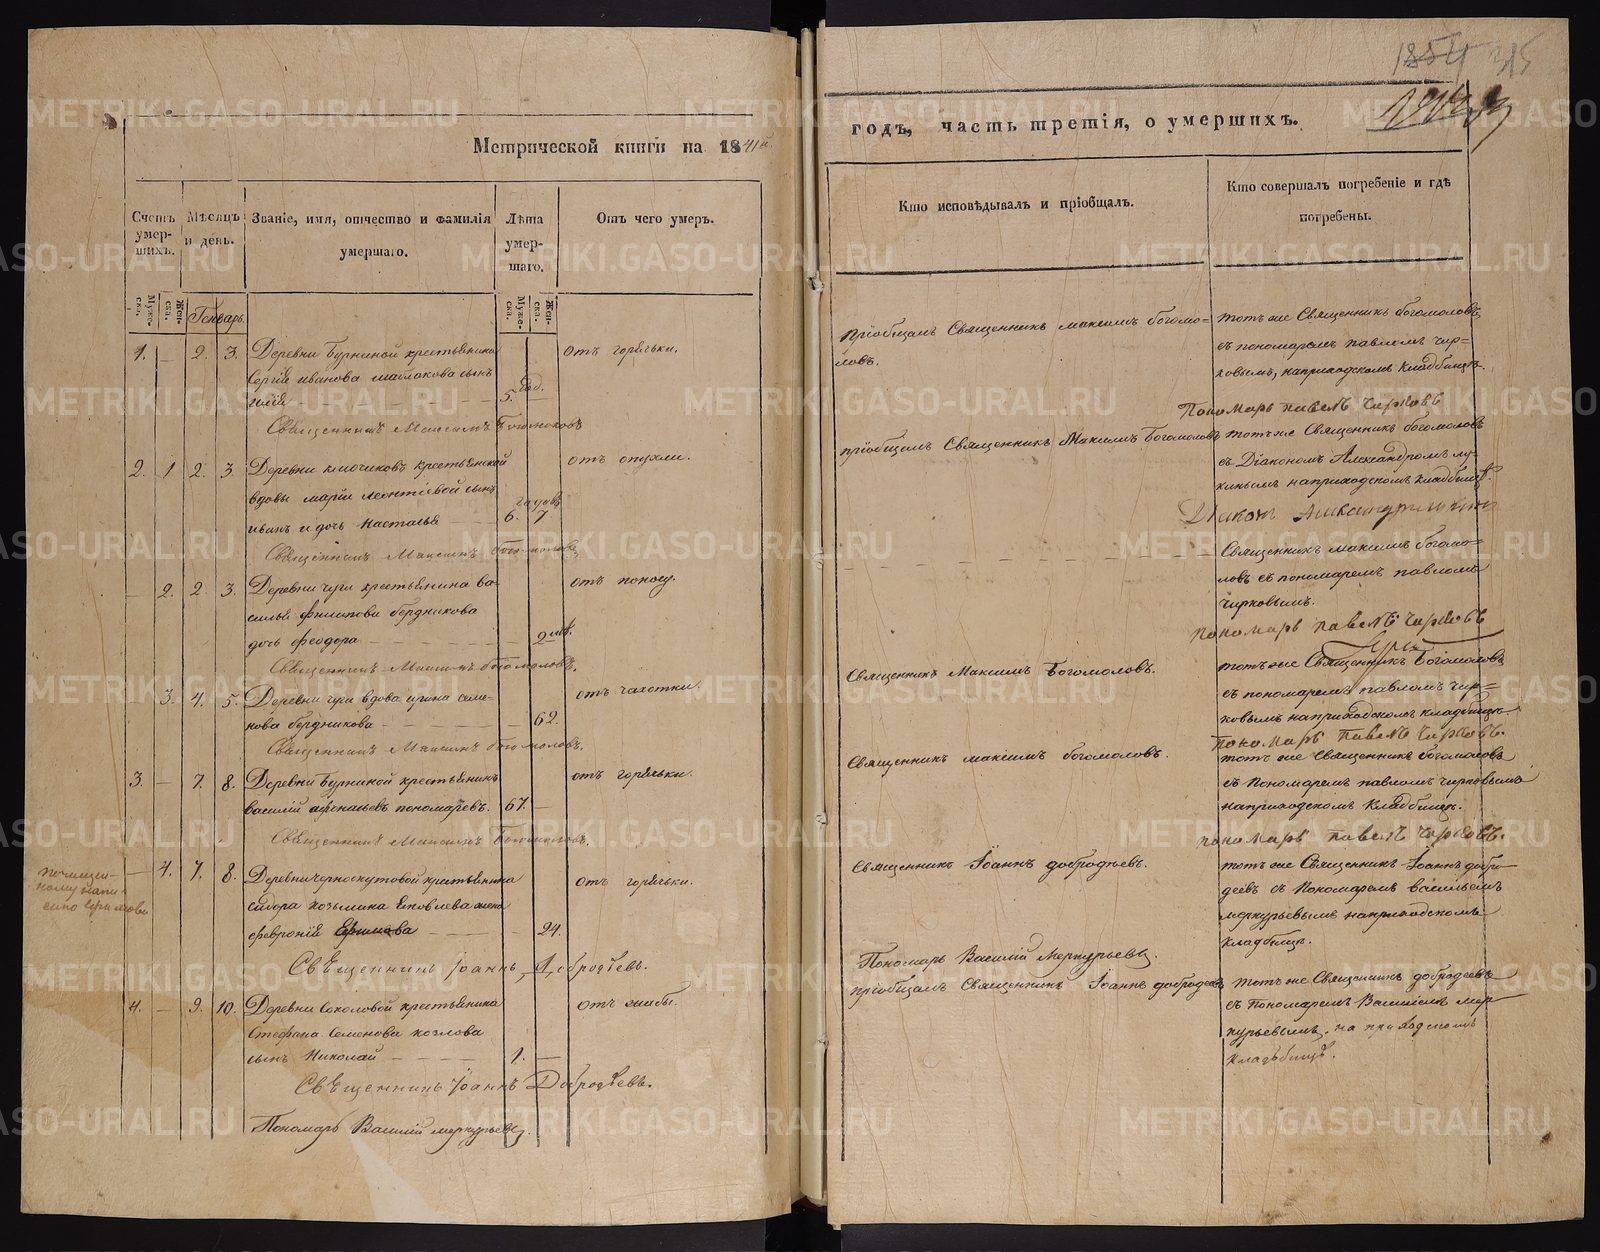 Метрической книги на 1841й
Счетъ умер-шихъ.
Мѣсяцъ и день.
Званіе, имя, отчество и фамилія умершаго.
Лѣта умер-шаго.
Отъ чего умеръ.
Муже-ска.
Жен-ска.
Генварь.
Муже-ска.
Жен-ска.
1. — 2. 3. Деревни Буркиной крестьянина
Сергія иванова маслакова сынъ
5. год.
Отъ горячьки.
Священникъ Максимъ Богомоловъ
2. 1 2. 3. Деревни ключиковъ крестьянской
вдовы маріи леонтіевой сынъ
годовъ
иванъ и дочь настасья 6. 7.
отъ опухли.
Священникъ Максимъ Богомоловъ
— 2. 2. 3. Деревни чуги крестьянина ва-
силья филипова бердникова
дочь феодора — 9 лѣт.
отъ поносу.
Священникъ Максимъ Богомоловъ.
3. 4. 5. Деревни чуги вдова ирина семе-
нова бердникова — 62.
отъ чахотки.
Священникъ Максимъ Богомоловъ.
3. — 7. 8. Деревни Буркиной крестьянинъ
василій афонасьевъ пономаревъ. 67. —
отъ горячьки.
Священникъ Максимъ Богомоловъ.
— 4. 7. 8. Деревни черноскутовой крестьянина
сидора козьмина Яковлева жена
февронія Ефимова — 24.
отъ горячьки.
Священникъ Іоаннъ Добродѣевъ.
4. — 9. 10. Деревни Соколовой крестьянина
Стефана Семенова козлова
сынъ Николай — 1. —
отъ жабы.
Священникъ Іоаннъ Добродѣевъ.
Пономарь Василій меркурьевъ.
годъ, часть третія, о умершихъ.
Кто исповѣдывалъ и пріобщалъ.
Кто совершалъ погребеніе и гдѣ погребены.
Пріобщалъ Священникъ максимъ богомо-
ловъ.
тотъ же Священникъ богомоловъ
съ пономаремъ павломъ чир-
ковымъ, на приходскомъ кладбищѣ.
Пономарь павелъ чирковъ
пріобщалъ Священникъ Максимъ Богомоловъ
тотъ же Священникъ богомоловъ
съ Діакономъ Александромъ лу-
кинымъ на приходскомъ кладбищѣ.
Діаконъ Александръ
Священникъ максимъ богомо-
ловъ съ пономаремъ павломъ
чирковымъ.
пономарь павелъ чирковъ
Священникъ Максимъ Богомоловъ.
тотъ же Священникъ Богомоловъ
съ пономаремъ павломъ чир-
ковымъ на приходскомъ кладбищѣ.
пономарь павелъ чирковъ.
Священникъ максимъ богомоловъ.
тотъ же Священникъ богомоловъ
съ Пономаремъ павломъ чирковымъ
на приходскомъ кладбищѣ.
пономарь павелъ чирковъ.
Священникъ Іоаннъ добродѣевъ.
тотъ же Священникъ Іоаннъ добро-
деевъ съ Пономаремъ васильемъ
меркурьевымъ на приходскомъ
кладбищѣ.
Пономарь Василій меркурьевъ.
пріобщалъ Священникъ Іоаннъ добродеевъ
тотъ же Священникъ добродеевъ
съ Пономаремъ Васильемъ мер-
курьевымъ. на приходскомъ
кладбищѣ.
METRIKI.GASO-URAL.RU